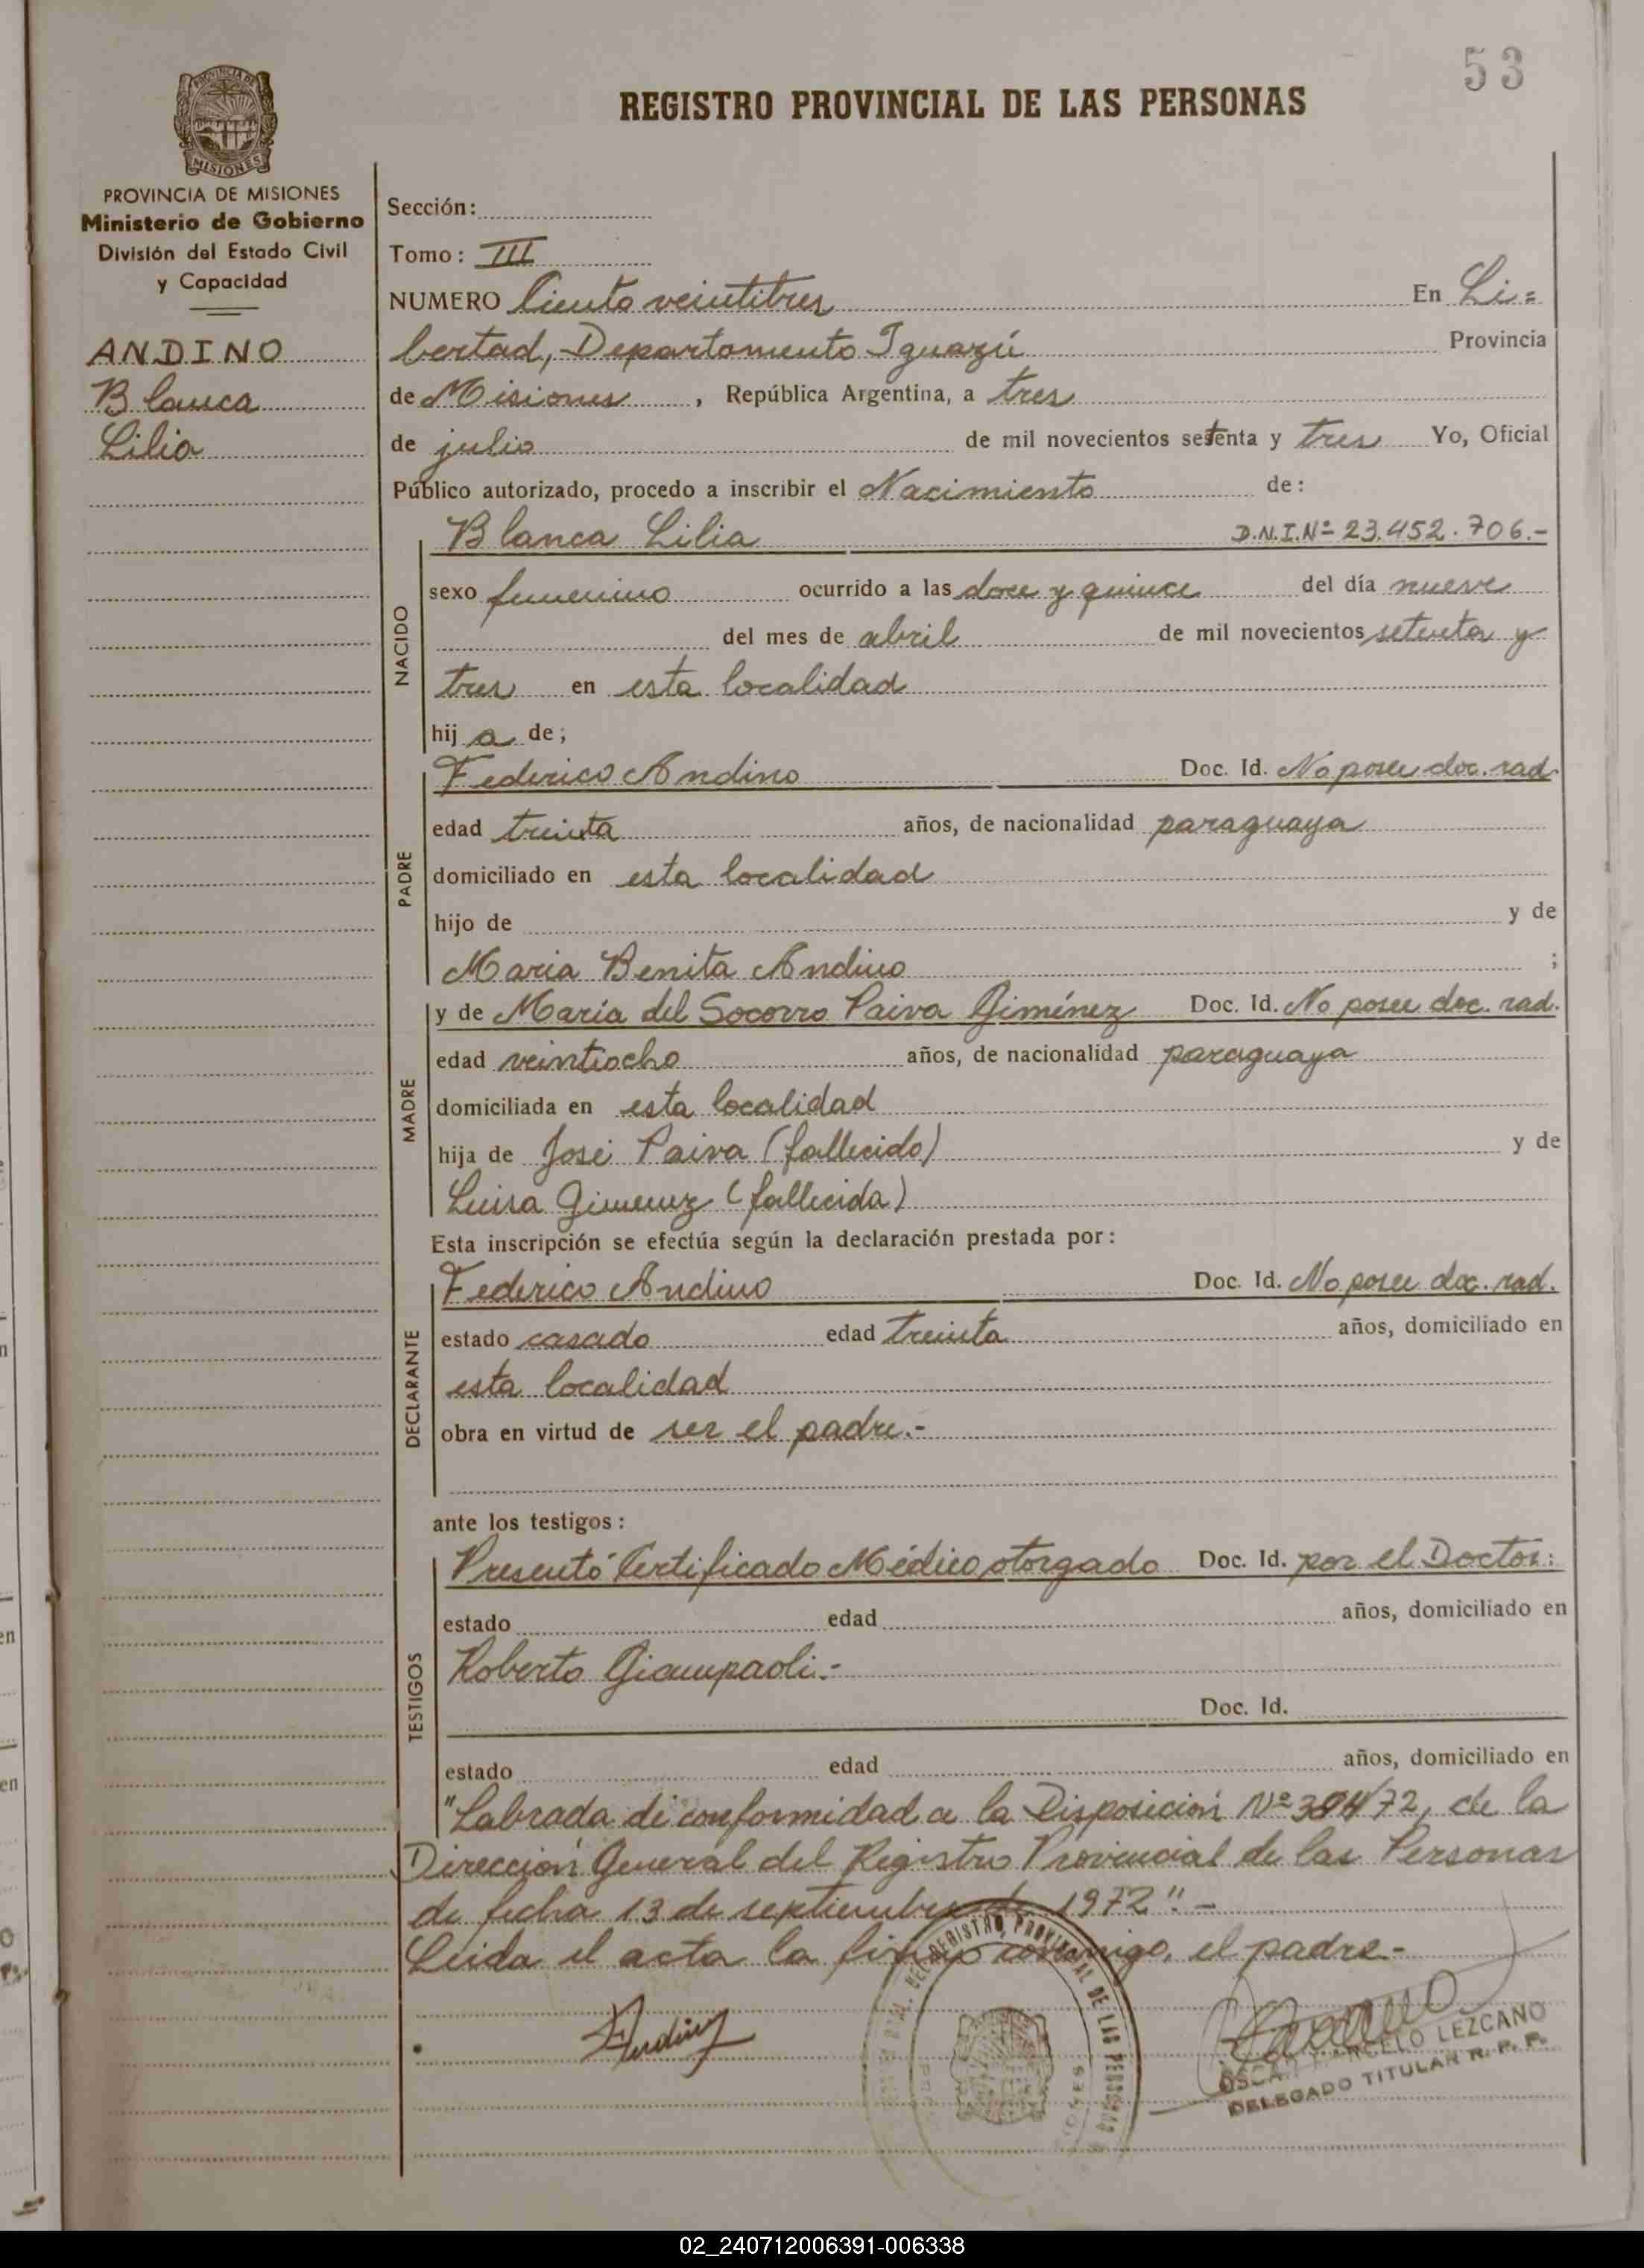 53
REGISTRO PROVINCIAL DE LAS PERSONAS
PROVINCIA DE MISIONES
Ministerio de Gobierno
División del Estado Civil
y Capacidad
ANDINO
Blanca
Lilia
Sección:
Tomo: III
NUMERO Ciento veintitres En Li=
bertad, Departamento Iguazú Provincia
de Misiones, República Argentina, a tres
de julio de mil novecientos setenta y tres Yo, Oficial
Público autorizado, procedo a inscribir el Nacimiento de:
NACIDO
Blanca Lilia D.N.I.Nº 23.452.706.-
sexo femenino ocurrido a las doce y quince del día nueve
del mes de abril de mil novecientos setenta y
tres en esta localidad
hija de;
PADRE
Federico Andino Doc. Id. No posee doc. rad.
edad treinta años, de nacionalidad paraguaya
domiciliado en esta localidad
hijo de y de
Maria Benita Andino ;
MADRE
y de María del Socorro Paiva Giménez Doc. Id. No posee doc. rad.
edad veintiocho años, de nacionalidad paraguaya
domiciliada en esta localidad
hija de José Paiva (fallecido) y de
Luisa Gimenez (fallecida)
Esta inscripción se efectúa según la declaración prestada por:
DECLARANTE
Federico Andino Doc. Id. No posee doc. rad.
estado casado edad treinta años, domiciliado en
esta localidad
obra en virtud de ser el padre.-
ante los testigos:
TESTIGOS
Presentó Certificado Médico otorgado Doc. Id. por el Doctor:
estado edad años, domiciliado en
Roberto Giampaoli.-
Doc. Id.
estado edad años, domiciliado en
"Labrada de conformidad a la Disposición Nº /72, de la
Dirección General del Registro Provincial de las Personas
de fecha 13 de septiembre de 1972".-
Leida el acta la firma conmigo, el padre.-
DEL REGISTRO PROVINCIAL DE LAS PERSONAS
MISIONES
Andino
OSCAR MARCELO LEZCANO
DELEGADO TITULAR R. P. P.
02_240712006391-006338